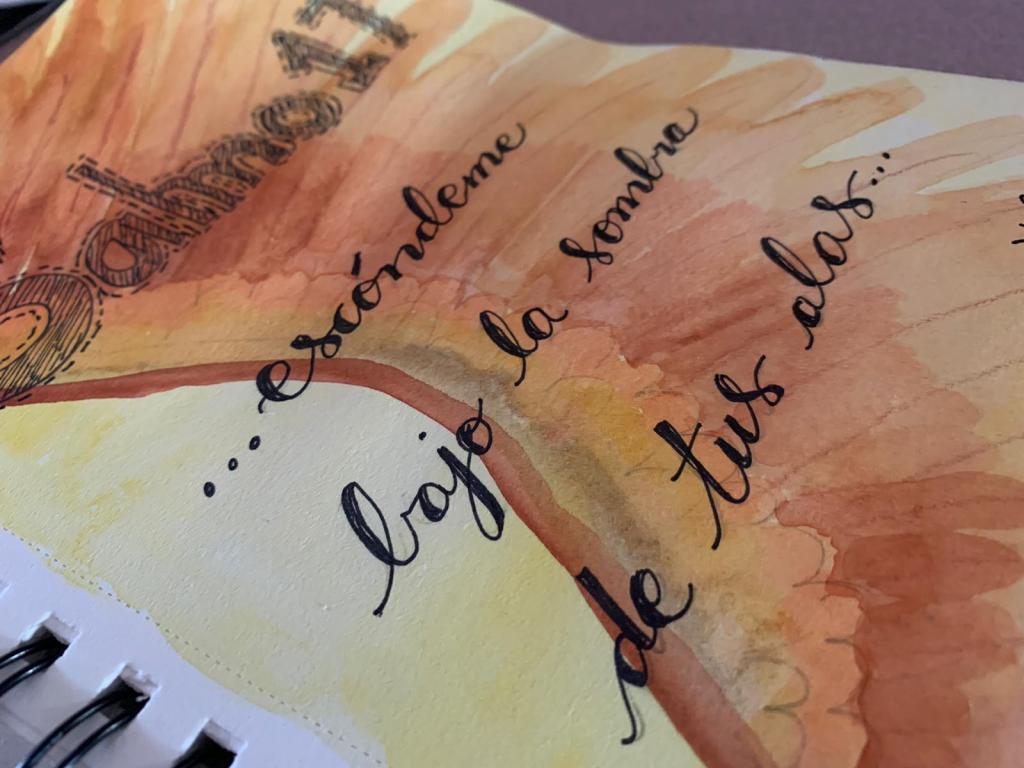 Salmo 17
...escóndeme
bajo la sombra
de tus alas...